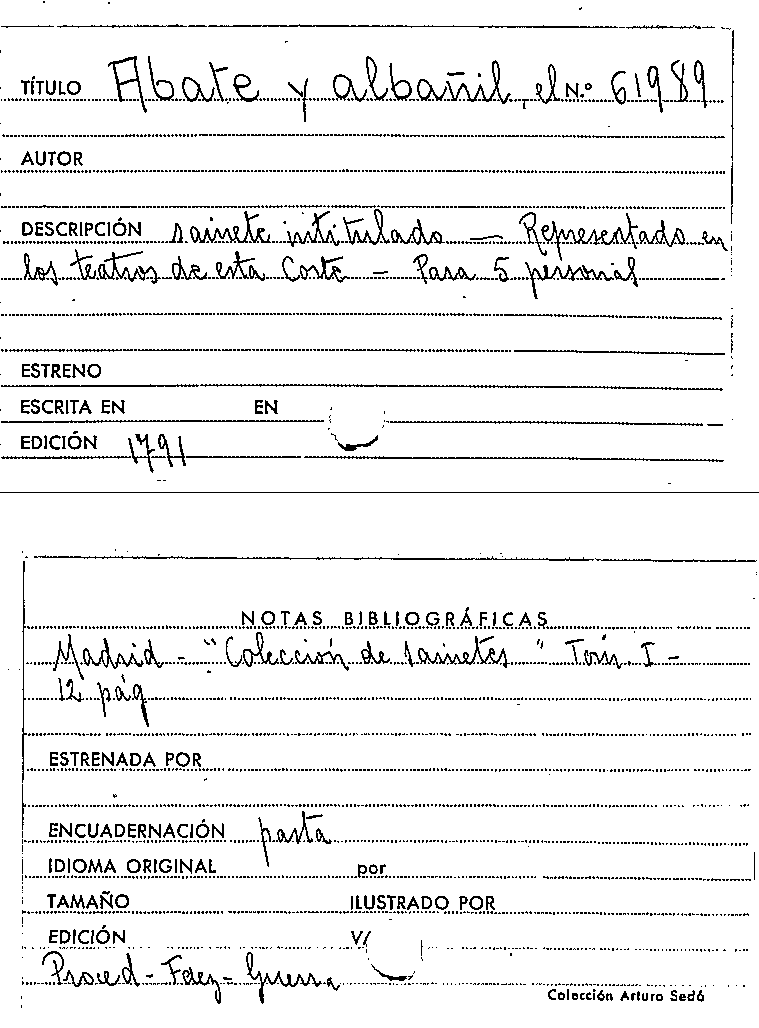 TÍTULO Abate y albañil, el N.º 61989
AUTOR
DESCRIPCIÓN sainete intitulado — Representado en
los teatros de esta Corte - Para 5 personas
ESTRENO
ESCRITA EN EN
EDICIÓN 1791
NOTAS BIBLIOGRÁFICAS
Madrid - "Colección de sainetes" Tom. I -
12 pág
ESTRENADA POR
ENCUADERNACIÓN pasta
IDIOMA ORIGINAL por
TAMAÑO ILUSTRADO POR
EDICIÓN V/
Proced - Fdez - Guerra
Colección Arturo Sedó